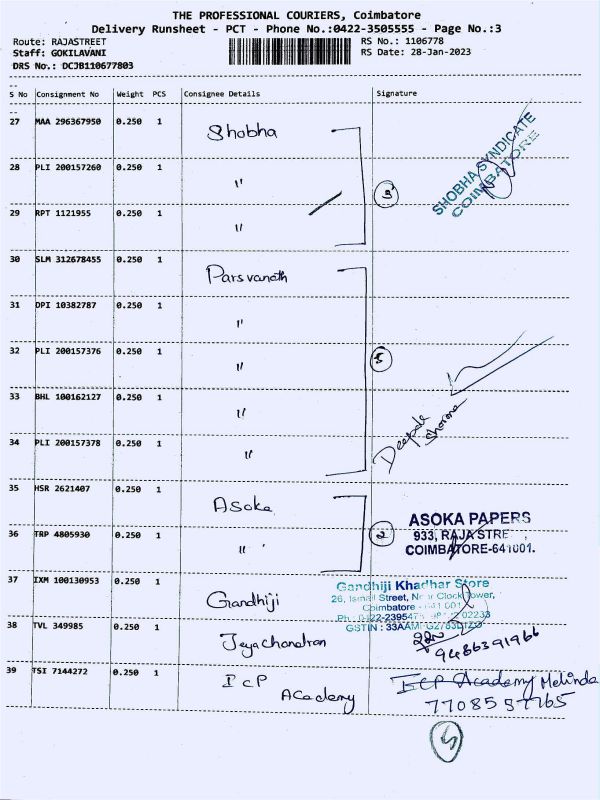 THE PROFESSIONAL COURIERS, Coimbatore
Delivery Runsheet - PCT - Phone No.:0422-3505555 - Page No.:3
Route: RAJASTREET RS No.: 1106778
Staff: GOKILAVANI RS Date: 28-Jan-2023
DRS No.: DCJB110677803
S No Consignment No Weight PCS Consignee Details Signature
27 MAA 296367950 0.250 1 Shobha
SHOBHA SYNDICATE
COIMBATORE
28 PLI 200157260 0.250 1 "
3
29 RPT 1121955 0.250 1 "
30 SLM 312678455 0.250 1 Parsvanath
31 DPI 10382787 0.250 1 "
32 PLI 200157376 0.250 1 "
5
33 BHL 100162127 0.250 1 "
Deepak
Sharma
34 PLI 200157378 0.250 1 "
35 HSR 2621407 0.250 1 Asoka
ASOKA PAPERS
933, RAJA STRE
COIMBATORE-641001.
36 TRP 4805930 0.250 1 "
2
37 IXM 100130953 0.250 1 Gandhiji
Gandhiji Khadhar Store
26, Ismail Street, Near Clock Tower,
Coimbatore - 641 001
GSTIN :
38 TVL 349985 0.250 1 Jeyachandran
9486391966
39 TSI 7144272 0.250 1 ICP
Academy
ICP Academy Melinda
7708557765
5